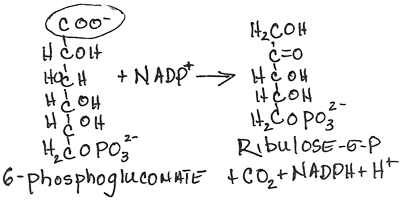 COO⁻
HCOH
HOCH
HCOH
HCOH
H₂COPO₃²⁻
6-phosphogluconate
+ NADP⁺ →
H₂COH
C=O
HCOH
HCOH
H₂COPO₃²⁻
Ribulose-5-P
+ CO₂ + NADPH + H⁺